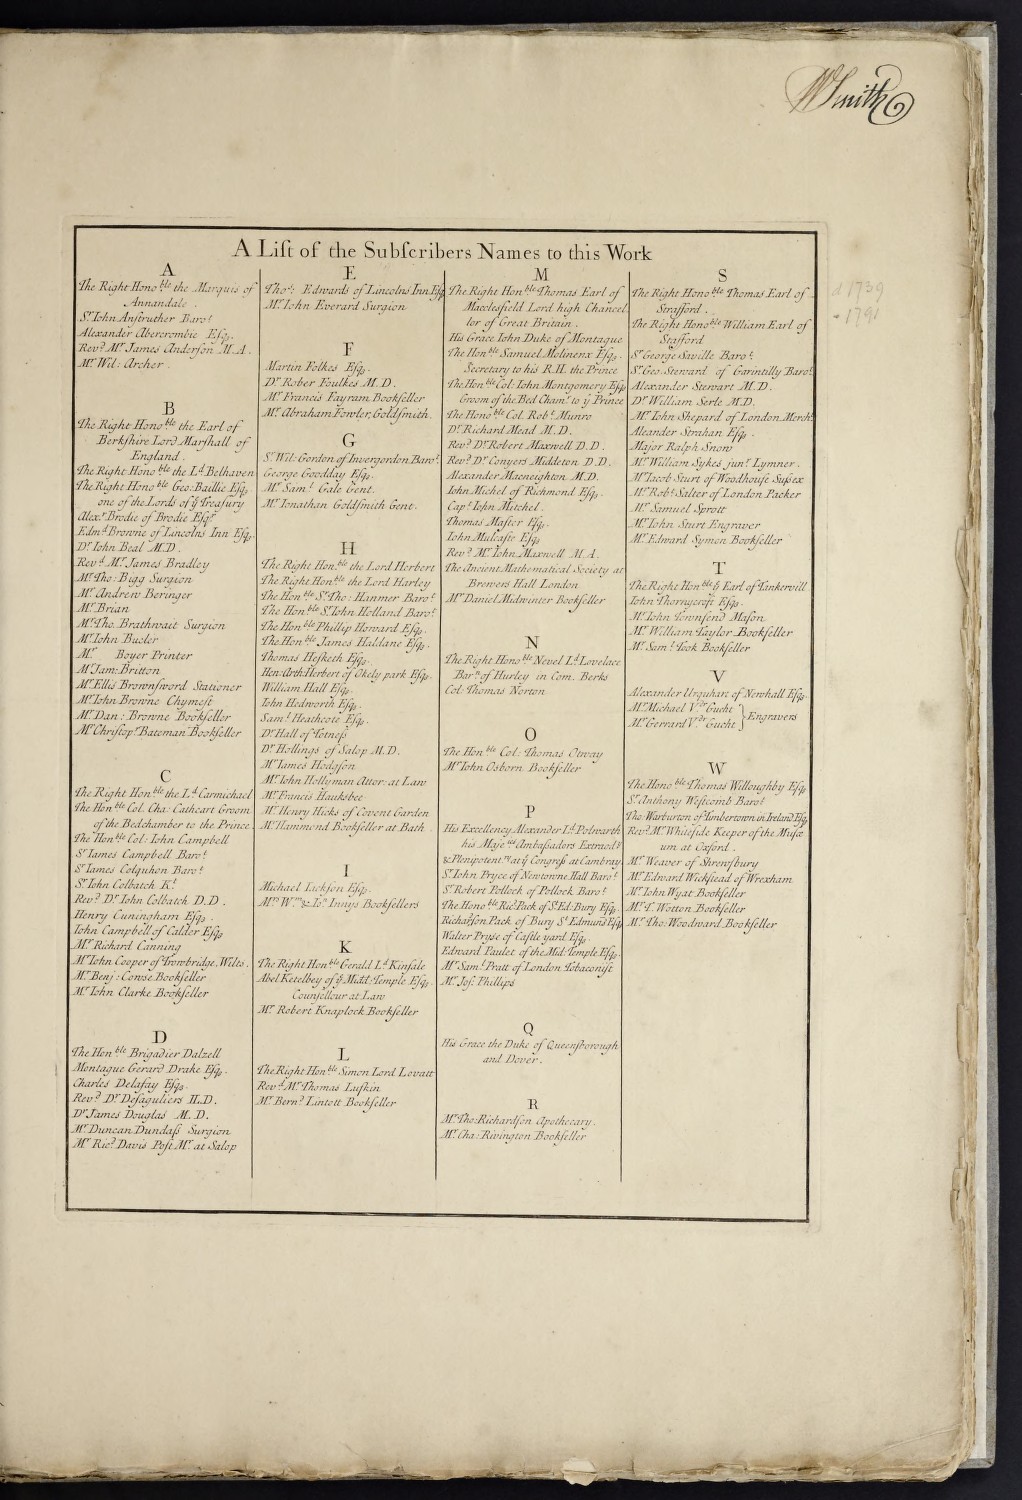 WSmith
d 1739
- 179
A Liſt of the Subſcribers Names to this Work
A
The Right Hono.ble the Marquis of
Annandale.
Sr. Iohn Anſtruther Baro.t
Alexander Abercrombie Eſq.
Rev.d Mr. James Anderſon M.A.
Mr. Wil: Archer.
B
The Right Hono.ble the Earl of
Berkſhire Lord Marſhall of
England.
The Right Hono.ble the L.d Belhaven
The Right Hono.ble Geo: Baillie Eſq
one of the Lords of ẙ Treaſury
Alex.r Brodie of Brodie Eſq.r
Edm.d Browne of Lincolns Inn Eſq.
Dr. Iohn Beal M.D.
Rev.d Mr. James Bradley
Mr. Tho: Bigg Surgion
Mr. Andrew Beringer
Mr. Brian
Mr. Tho. Brathwait Surgion
Mr. Iohn Busler
Mr. Boyer Printer
Mr. Jam: Britton
Mr. Ellis Brownſword Stationer
Mr. Iohn Browne Chymeſt
Mr. Dan: Browne Bookſeller
Mr. Chriſtop.r Bateman Bookſeller
C
The Right Hon.ble the L.d Carmichael
The Hon.ble Col. Cha: Cathcart Groom
of the Bedchamber to the Prince
The Hon.ble Col: Iohn Campbell
Sr. Iames Campbell Baro.t
Sr. Iames Colquhon Baro.t
Sr. Iohn Colbatch K.t
Rev.d Dr. Iohn Colbatch D.D.
Henry Cuningham Eſq.
Iohn Campbell of Calder Eſq
Mr. Richard Canning
Mr. Iohn Cooper of Trowbridge, Wilts.
Mr. Benj: Cowse Bookſeller
Mr. Iohn Clarke Bookſeller
D
The Hon.ble Brigadier Dalzell
Montague Gerard Drake Eſq.
Charles Delafay Eſq.
Rev.d Dr. Deſaguliers LL.D.
Dr. James Douglas M.D.
Mr. Duncan Dundaſs Surgion
Mr. Ric.d Davis Poſt Mr. at Salop
E
Tho.s: Edwards of Lincolns Inn Eſq
Mr. Iohn Everard Surgion
F
Martin Folkes Eſq.
Dr. Rober Foulkes M.D.
Mr. Francis Fayram Bookſeller
Mr. Abraham Fowler, Goldſmith.
G
Sr. Wil: Gordon of Invergordon Baro.t
George Goodday Eſq.
Mr. Sam.l Gale Gent.
Mr. Ionathan Goldſmith Gent.
H
The Right Hon.ble the Lord Herbert
The Right Hon.ble the Lord Harley
The Hon.ble Sr. Tho: Hanmer Baro.t
The Hon.ble Sr. Iohn Holland Baro.t
The Hon.ble Phillip Howard Eſq.
The Hon.ble James Haldane Eſq.
Thomas Heſketh Eſq.
Hen: Arth: Herbert of Okely park Eſq.
William Hall Eſq.
Iohn Hedworth Eſq.
Sam.l Heathcote Eſq.
Dr. Hall of Totneſs
Dr. Hollings of Salop M.D.
Mr. Iames Hodgſon
Mr. Iohn Hollyman Attor: at Law
Mr. Francis Hauksbee
Mr. Henry Hicks of Covent Garden
Mr. Hammond Bookſeller at Bath
I
Michael Iackſon Eſq.
Mr.s W.m & Io.n Innys Bookſellers
K
The Right Hon.ble Gerald L.d Kinſale
Abel Ketelbey of ẙ Midd: Temple Eſq.
Counſellour at Law
Mr. Robert Knaplock Bookſeller
L
The Right Hon.ble Simon Lord Lovatt
Rev.d Mr. Thomas Luſkin
Mr. Bern.d Lintott Bookſeller
M
The Right Hon.ble Thomas Earl of
Macclesfield Lord high Chancel
lor of Great Britain.
His Grace Iohn Duke of Montague
The Hon.ble Samuel Molinenx Eſq.
Secretary to his R.H. the Prince
The Hon.ble Col: Iohn Montgomery Eſq
Groom of the Bed Cham.r to ẙ Prince
The Hono.ble Col. Rob.t Munro
Dr. Richard Mead M.D.
Rev.d Dr. Robert Maxwell D.D.
Rev.d Dr. Conyers Middleton D.D.
Alexander Macneighton M.D.
Iohn Michel of Richmond Eſq.
Cap.t Iohn Mitchel.
Thomas Maſter Eſq.
Iohn Mulcaſte Eſq
Rev.d Mr. Iohn Maxwell M.A.
The Ancient Mathematical Society at
Brewers Hall London
Mr. Daniel Midwinter Bookſeller
N
The Right Hono.ble Nevel L.d Lovelace
Bar.n of Hurley in Com. Berks
Col: Thomas Norton
O
The Hon.ble Col: Thomas Otway
Mr. Iohn Osborn Bookſeller
P
His Excellency Alexander L.d Polwarth
his Maje.ties Ambaſsadors Extraod.y
& Plenipotent.ry at ẙ Congreſs at Cambray
Sr. Iohn Pryce of Newtowne Hall Baro.t
Sr. Robert Pollock of Pollock Baro.t
The Hono.ble Ric.d Pack of St. Ed: Bury Eſq.
Richardſon Pack of Bury St. Edmund Eſq
Walter Pryſe of Caſtle yard Eſq.
Edward Paulet of the Mid: Temple Eſq.
Mr. Sam.l Pratt of London Tobaconiſt
Mr. Joſ: Phillips
Q
His Grace the Duke of Queenſborough
and Dover.
R
Mr. Tho: Richardſon Apothecary.
Mr. Cha: Rivington Bookſeller
S
The Right Hono.ble Thomas Earl of
Strafford.
The Right Hono.ble William Earl of
Stafford
Sr. George Saville Baro.t
Sr. Geo. Steward of Garintilly Baro.t
Alexander Stewart M.D.
Dr. William Serle M.D.
Mr. Iohn Shepard of London Merch.t
Aleander Strahan Eſq.
Major Ralph Snow
Mr. William Sykes jun.r Lymner.
Mr. Iacob Sturt of Woodhouſe Suſsex
Mr. Rob.t Salter of London Packer
Mr. Samuel Sprott
Mr. Iohn Sturt Engraver
Mr. Edward Symon Bookſeller
T
The Right Hon.ble ẙ Earl of Tankervill
Iohn Thornycroft Eſq.
Mr. Iohn Townſend Maſon
Mr. William Taylor Bookſeller
Mr. Sam.l Took Bookſeller
V
Alexander Urquhart of Newhall Eſq.
Mr. Michael V.dr Gucht } Engravers
Mr. Gerrard V.dr Gucht
W
The Hono.ble Thomas Willoughby Eſq
Sr. Anthony Weſtcomb Baro.t
Tho: Warburton of Timbertown in Ireland Eſq
Rev.d Mr. Whiteſide Keeper of the Muſæ
um at Oxford.
Mr. Weaver of Shrewſbury
Mr. Edward Wickſtead of Wrexham
Mr. Iohn Wyat Bookſeller
Mr. T. Wotton Bookſeller
Mr. Tho: Woodward Bookſeller